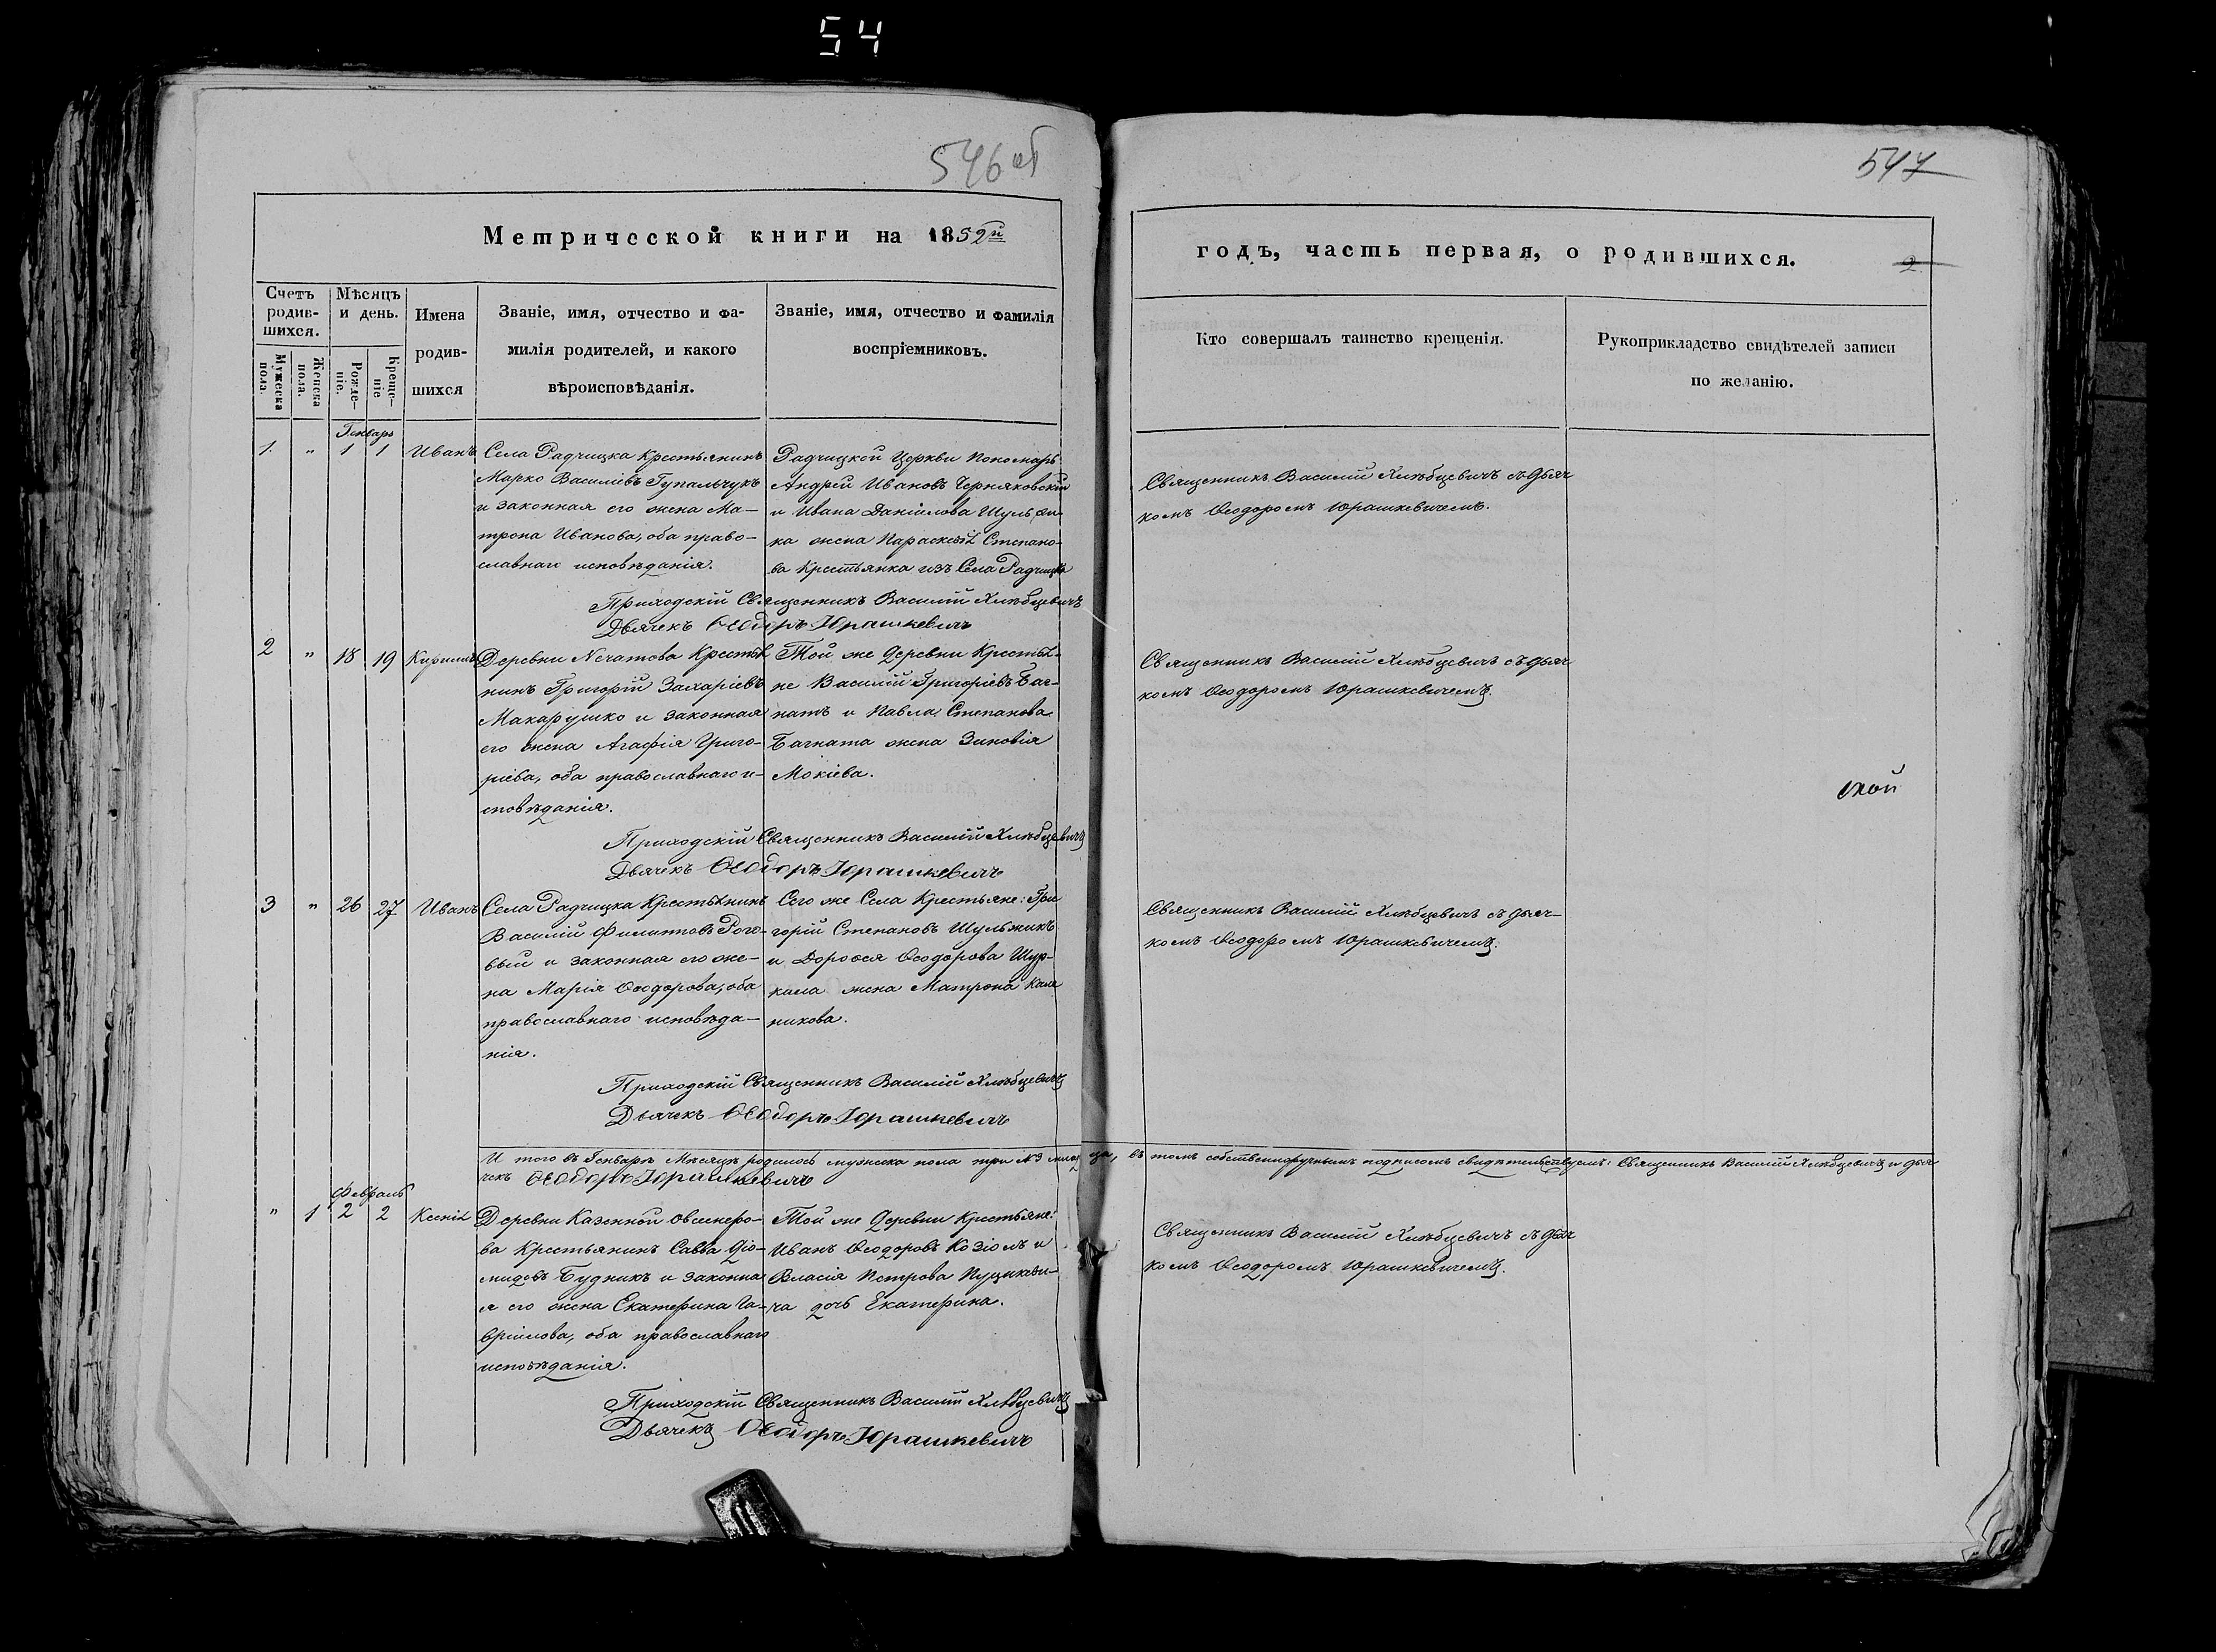 54
546 об
547
Метрической книги на 1852й
годъ, часть первая, о родившихся.
2
Счетъ родив-шихся.
Мужеска пола.
Женска пола.
Мѣсяцъ и день.
Рожде-ніе.
Креще-ніе
Имена родив-шихся
Званіе, имя, отчество и фа-
милія родителей, и какого
вѣроисповѣданія.
Званіе, имя, отчество и фамилія
воспріемниковъ.
Кто совершалъ таинство крещенія.
Рукоприкладство свидѣтелей записи
по желанію.
Генварь
1. " 1 1 Иванъ
Села Радчицка Крестьянинъ
Марко Василіевъ Гупальчукъ
и законная его жена Ма-
трона Иванова, оба право-
славнаго исповѣданія.
Радчицкой Церкви Пономарь
Андрей Ивановъ Черняковскій
и Ивана Даніилова
ка жена Параскевія Степано-
ва Крестьянка изъ Села Радчицка
Священникъ Василій Хлѣбцевичъ съ Дьяч
комъ Ѳеодоромъ Юрашкевичемъ.
Приходскій Священникъ Василій Хлѣбцевичъ
Дьячекъ Ѳеодоръ Юрашкевичъ
2 " 18 19 Кириллъ
Деревни Нечатова Крестья
нинъ Григорій Захаріевъ
Макарушко и законная
его жена Агафія Григо-
ріева, оба православнаго и-
сповѣданія.
Той же деревни Крестья-
не Василій Григоріевъ Баг-
натъ и Павла Степанова
Багната жена Зиновія
Мокіева.
Священникъ Василій Хлѣбцевичъ съ дьяч
комъ Ѳеодоромъ Юрашкевичемъ.
ской
Приходскій Священникъ Василій Хлѣбцевичъ
Дьячекъ Ѳеодоръ Юрашкевичъ
3 " 26 27 Иванъ
Села Радчицка Крестьянинъ
Василій Филипповъ Рого-
вый и законная его же-
на Марія Ѳеодорова, оба
православнаго исповѣда-
нія.
Сего же Села Крестьяне: Гри
горій Степановъ Шульжикъ
и Дороѳея Ѳеодорова Шур-
кала жена Матрона Кале
никова.
Священникъ Василій Хлѣбцевичъ съ дьяч-
комъ Ѳеодоромъ Юрашкевичемъ.
Приходскій Священникъ Василій Хлѣбцевичъ
Дьячекъ Ѳеодоръ Юрашкевичъ
И того въ Генварѣ Мѣсяцѣ родилось мужеска пола три №3 въ томъ собственноручнымъ подписомъ свидѣтельствуемъ: Священникъ Василій Хлѣбцевичъ и дья
чекъ Ѳеодоръ Юрашкевичъ
Февраль
" 1 2 2 Ксенія
Деревни Казенной Овсемеро-
ва Крестьянинъ Савва Діо-
мидовъ Будникъ и законна
я его жена Екатерина Га-
вріилова, оба православнаго
исповѣданія.
Той же деревни Крестьяне:
Иванъ Ѳеодоровъ Козіолъ и
Власія Петрова Пуцикови-
ча дочь Екатерина.
Священникъ Василій Хлѣбцевичъ съ дьяч
комъ Ѳеодоромъ Юрашкевичемъ.
Приходскій Священникъ Василій Хлѣбцевичъ
Дьячекъ Ѳеодоръ Юрашкевичъ